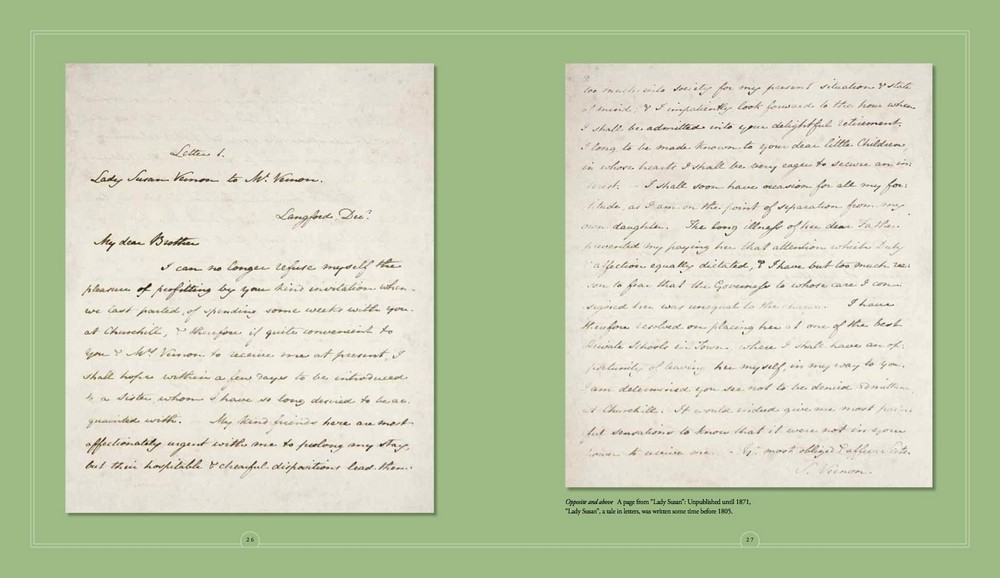 Letter 1.
Lady Susan Vernon to Mr. Vernon.
Langford. Decr.
My dear Brother
I can no longer refuse myself the
pleasure of profitting by your kind invitation when
we last parted, of spending some weeks with you
at Churchill, & therefore if quite convenient to
you & Mrs. Vernon to receive me at present, I
shall hope within a few days to be introduced
to a Sister whom I have so long desired to be ac-
quainted with. My kind friends here are most
affectionately urgent with me to prolong my stay,
but their hospitable & chearful dispositions lead them
26
too much into society for my present situation & state
of mind; & I impatiently look forward to the hour when
I shall be admitted into your delightful retirement.
I long to be made known to your dear little Children,
in whose hearts I shall be very eager to secure an in-
terest. - I shall soon have occasion for all my for-
titude, as I am on the point of separation from my
own daughter. The long illness of her dear Father
prevented my paying her that attention which Duty
& affection equally dictated, & I have but too much rea-
son to fear that the Governess to whose care I con-
signed her was unequal to the charge. I have
therefore resolved on placing her at one of the best
Private Schools in Town, where I shall have an op-
portunity of leaving her myself, in my way to you.
I am determined you see not to be denied admittance
at Churchill. It would indeed give me most pain-
ful sensations to know that it were not in your
power to receive me. - Yr. most obliged & affec: Sister
S. Vernon.
Opposite and above A page from "Lady Susan": Unpublished until 1871,
"Lady Susan", a tale in letters, was written some time before 1805.
27